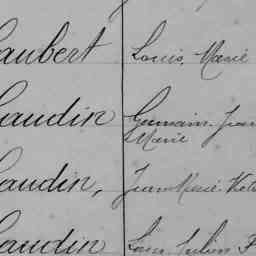 aubert Louis, Marie
audin Germain Jean
Marie
audin, Jean Marie
audin Louis Julien